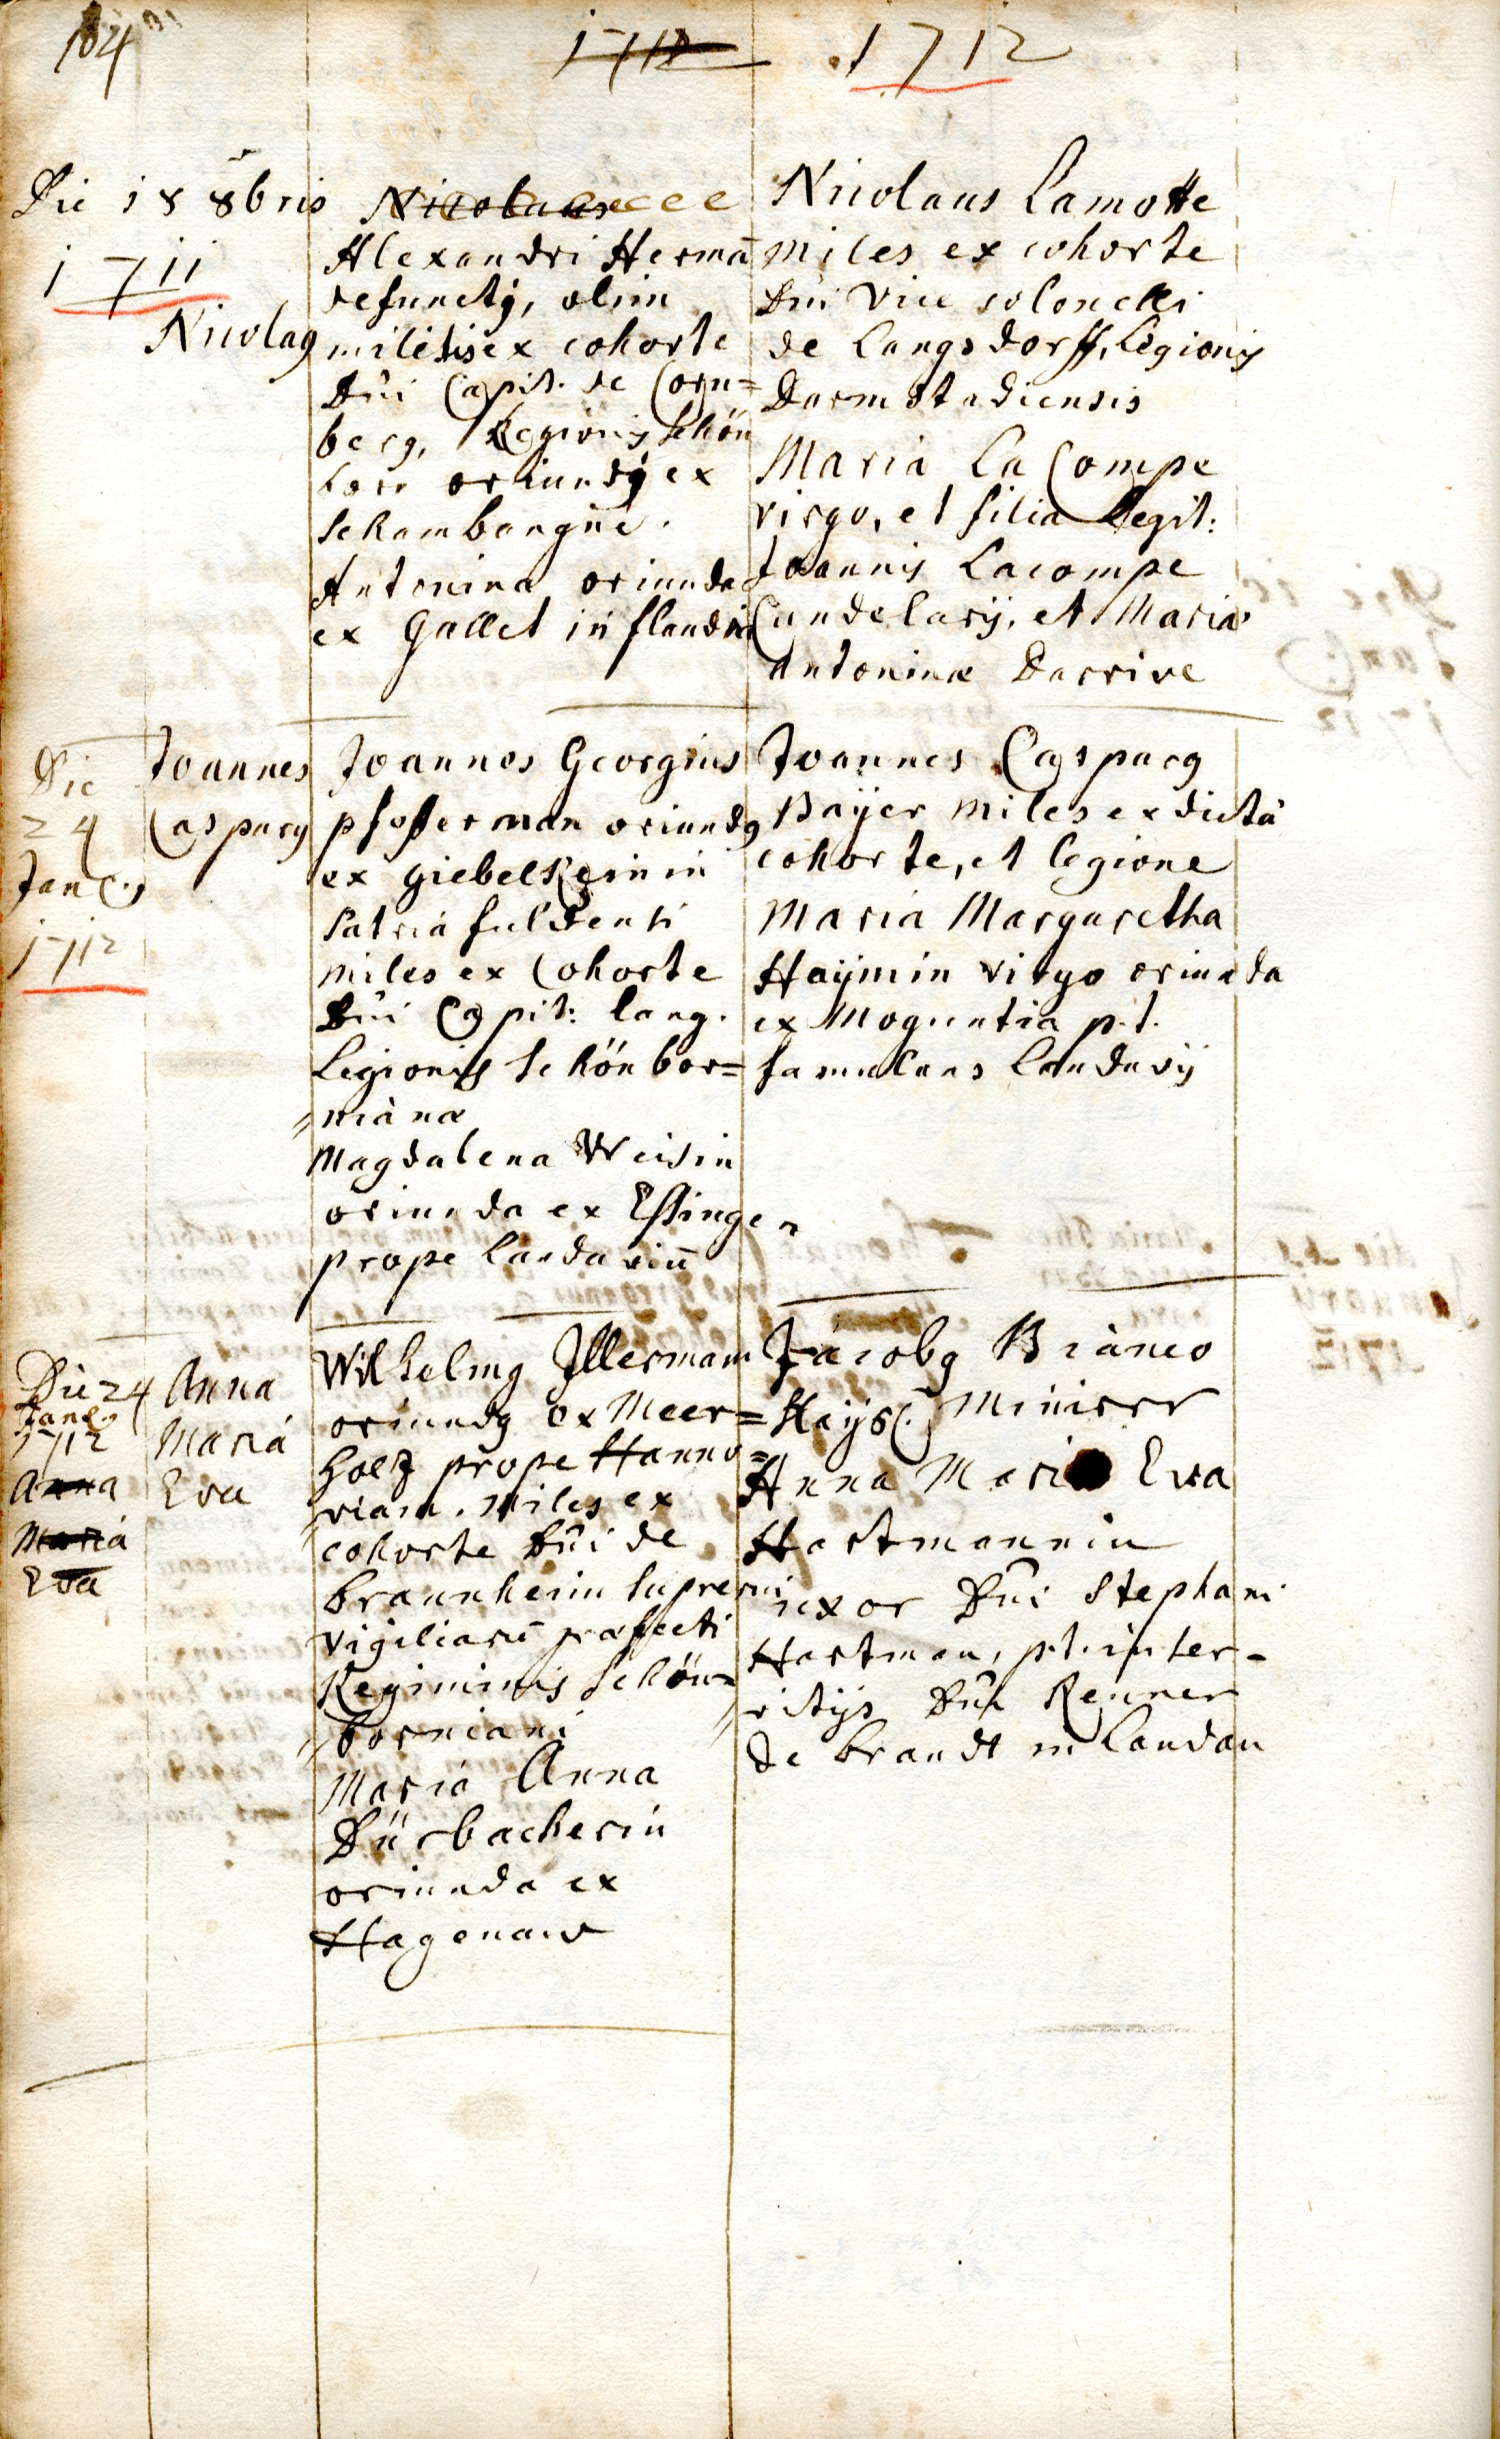 104
1712 1712
Die 18 8bris
1711
Nicolaus
Nicolaus
Alexandri Hermã
defuncti, olim
militis ex cohorte
Dñi Capit. de Corn=
berg, Legionis Schön
born oriundi ex
Schambangne.
Antonina oriunda
ex Gallet in flandria
Nicolaus Lamotte
miles ex cohorte
Dñi Vice colonelli
de Langsdorff, Legionis
Darmstadiensis
Maria La Compe
virgo, et filia legit:
Joannis Lacompe
Candelarij, et Maria
Antoninæ Darrive
Die
24
Jan
1712
Joannes
Casparus
Joannes Georgius
pfofferman oriundus
ex giebelstein in
patria fuldensi
miles ex Cohorte
Dñi Capit: lang.
Legionis Schönbor=
niana
Magdalena Weisin
oriunda ex Essingen
prope Landaviũ
Joannes Casparus
Bayer miles ex dicta
cohorte, et legione
Maria Margaretha
Haÿmin virgo oriunda
ex Moguntia p.t.
famulans Landavij
Die 24
Jan
1712
Anna
Maria
Eva
Anna
Maria
Eva
Wilhelmus Illerman
oriundus ex Meer=
holz prope Hanno=
viam. miles ex
cohorte Dñi de
braunheim supremi
vigiliarũ præfecti
Regiminis Schön=
borniani
Maria Anna
Dürbacherin
oriunda ex
Hagenaw
Jacobus Bianco
Minister
Anna Maria Eva
Hartmannin
uxor Dñi Stephani
Hartman, p.t. in ter-
ritijs Dñi Renner
de brandt in Landau